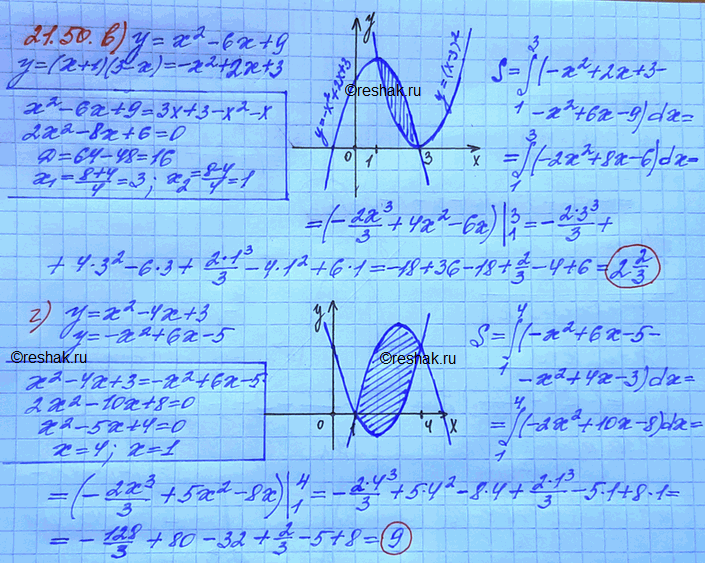 21.50. в) y = x² - 6x + 9
y = (x+1)(3-x) = -x² + 2x + 3
x² - 6x + 9 = 3x + 3 - x² - x
2x² - 8x + 6 = 0
D = 64 - 48 = 16
x₁ = (8+4)/4 = 3; x₂ = (8-4)/4 = 1
y
y = -x² + 2x + 3
y = (x-3)²
©reshak.ru
0 1 3 x
S = ∫₁³ (-x² + 2x + 3 -
- x² + 6x - 9) dx =
= ∫₁³ (-2x² + 8x - 6) dx =
= (- 2x³/3 + 4x² - 6x) |₁³ = - 2·3³/3 +
+ 4·3² - 6·3 + 2·1³/3 - 4·1² + 6·1 = -18 + 36 - 18 + 2/3 - 4 + 6 = 2 2/3
г) y = x² - 4x + 3
y = -x² + 6x - 5
©reshak.ru
x² - 4x + 3 = -x² + 6x - 5
2x² - 10x + 8 = 0
x² - 5x + 4 = 0
x = 4; x = 1
y
©reshak.ru
0 1 4 x
S = ∫₁⁴ (-x² + 6x - 5 -
- x² + 4x - 3) dx =
= ∫₁⁴ (-2x² + 10x - 8) dx =
= (- 2x³/3 + 5x² - 8x) |₁⁴ = - 2·4³/3 + 5·4² - 8·4 + 2·1³/3 - 5·1 + 8·1 =
= - 128/3 + 80 - 32 + 2/3 - 5 + 8 = 9